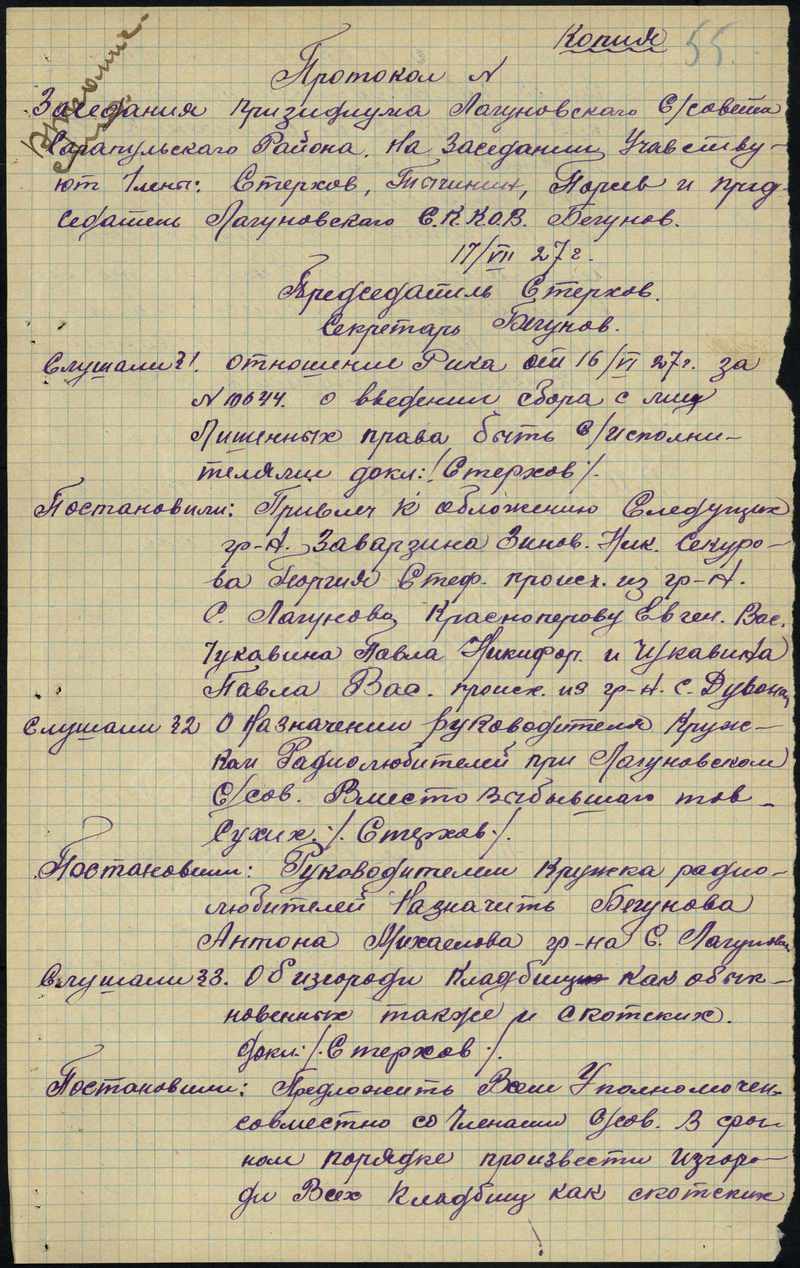 Копия 55.
Протокол N
Заседания призидиума Лагуновского С/совета
Сарапульского Района. На Заседании Учавству-
ют Члены: Стерхов, Порсев и пред-
седатель Лагуновского С.К.К.О.В. Бегунов.
17/VII 27 г.
Председатель Стерхов.
Секретарь Бегунов.
Слушали §1. отношение Рика от 16/VI 27 г. за
N 10644. о введении сбора с лиц
Лишенных права быть С/исполни-
телями докл:/Стерхов/.
Постановили: Привлеч к обложению Следущих
гр-н. Заварзина Зинов. Ник. Секуро-
ва Георгия Стеф. происх. из гр-н.
С. Лагуново, Красноперову Евген. Вас.
Чукавина Павла Никифор. и Чукавина
Павла Вас. происх. из гр-н. с.
Слушали §2 О Назначении руководителя Круж-
ка Радиолюбителей при Лагуновском
С/сов. Вместо Выбывшаго тов
Сухих ./. Стерхов./.
Постановили: Руководителем Кружка радио-
любителей Назначить Бегунова
Антона Михаелова гр-на С. Лагуново
Слушали §3. Об изгороди Кладбищ как обык-
новенных также и скотских.
докл:/.Стерхов/.
Постановили: Предложить Всем Уполномочен.
совместно со Членами С/сов. В сроч
ном порядке произвести Изгоро-
ди Всех Кладбищ как скотских